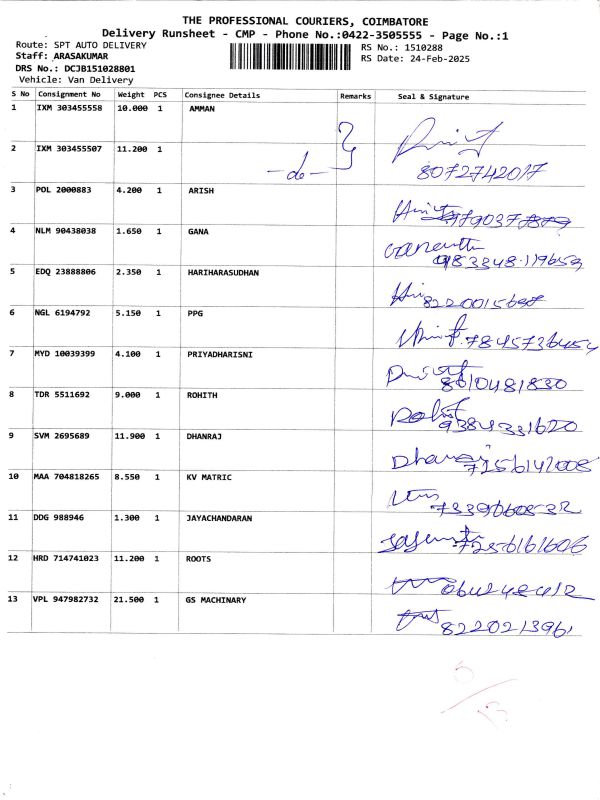 THE PROFESSIONAL COURIERS, COIMBATORE
Delivery Runsheet - CMP - Phone No.:0422-3505555 - Page No.:1
Route: SPT AUTO DELIVERY
RS No.: 1510288
Staff: ARASAKUMAR
RS Date: 24-Feb-2025
DRS No.: DCJB151028801
Vehicle: Van Delivery
S No Consignment No Weight PCS Consignee Details Remarks Seal & Signature
1 IXM 303455558 10.000 1 AMMAN
2 IXM 303455507 11.200 1 -do-
8072742017
3 POL 2000883 4.200 1 ARISH
4 NLM 90438038 1.650 1 GANA
5 EDQ 23888806 2.350 1 HARIHARASUDHAN
6 NGL 6194792 5.150 1 PPG
7845736454
7 MYD 10039399 4.100 1 PRIYADHARISNI
8610481830
8 TDR 5511692 9.000 1 ROHITH
9384331620
9 SVM 2695689 11.900 1 DHANRAJ
Dhanraj 7256142008
10 MAA 704818265 8.550 1 KV MATRIC
11 DDG 988946 1.300 1 JAYACHANDARAN
7256161606
12 HRD 714741023 11.200 1 ROOTS
13 VPL 947982732 21.500 1 GS MACHINARY
8220213961